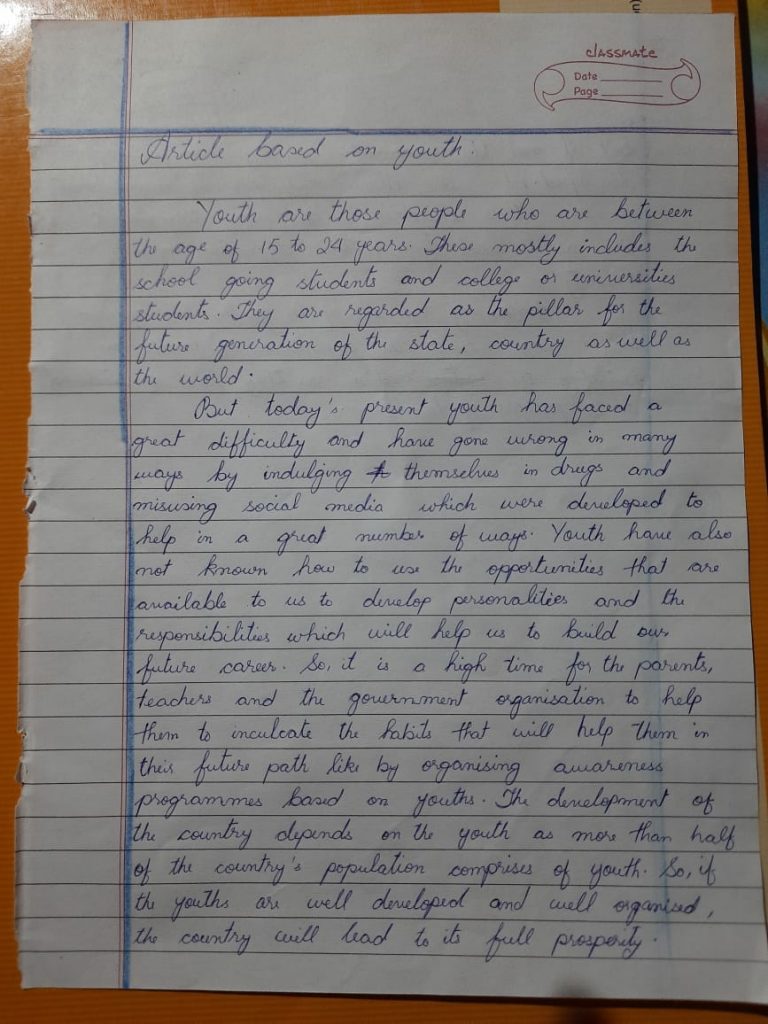 classmate
Date
Page
Article based on youth.
Youth are those people who are between
the age of 15 to 24 years. These mostly includes the
school going students and college or universities
students. They are regarded as the pillar for the
future generation of the state, country as well as
the world.
But today's present youth has faced a
great difficulty and have gone wrong in many
ways by indulging themselves in drugs and
misusing social media which were developed to
help in a great number of ways. Youth have also
not known how to use the opportunities that are
available to us to develop personalities and the
responsibilities which will help us to build our
future career. So, it is a high time for the parents,
teachers and the government organisation to help
them to inculcate the habits that will help them in
their future path like by organising awareness
programmes based on youths. The development of
the country depends on the youth as more than half
of the country's population comprises of youth. So, if
the youths are well developed and well organised,
the country will lead to its full prosperity.